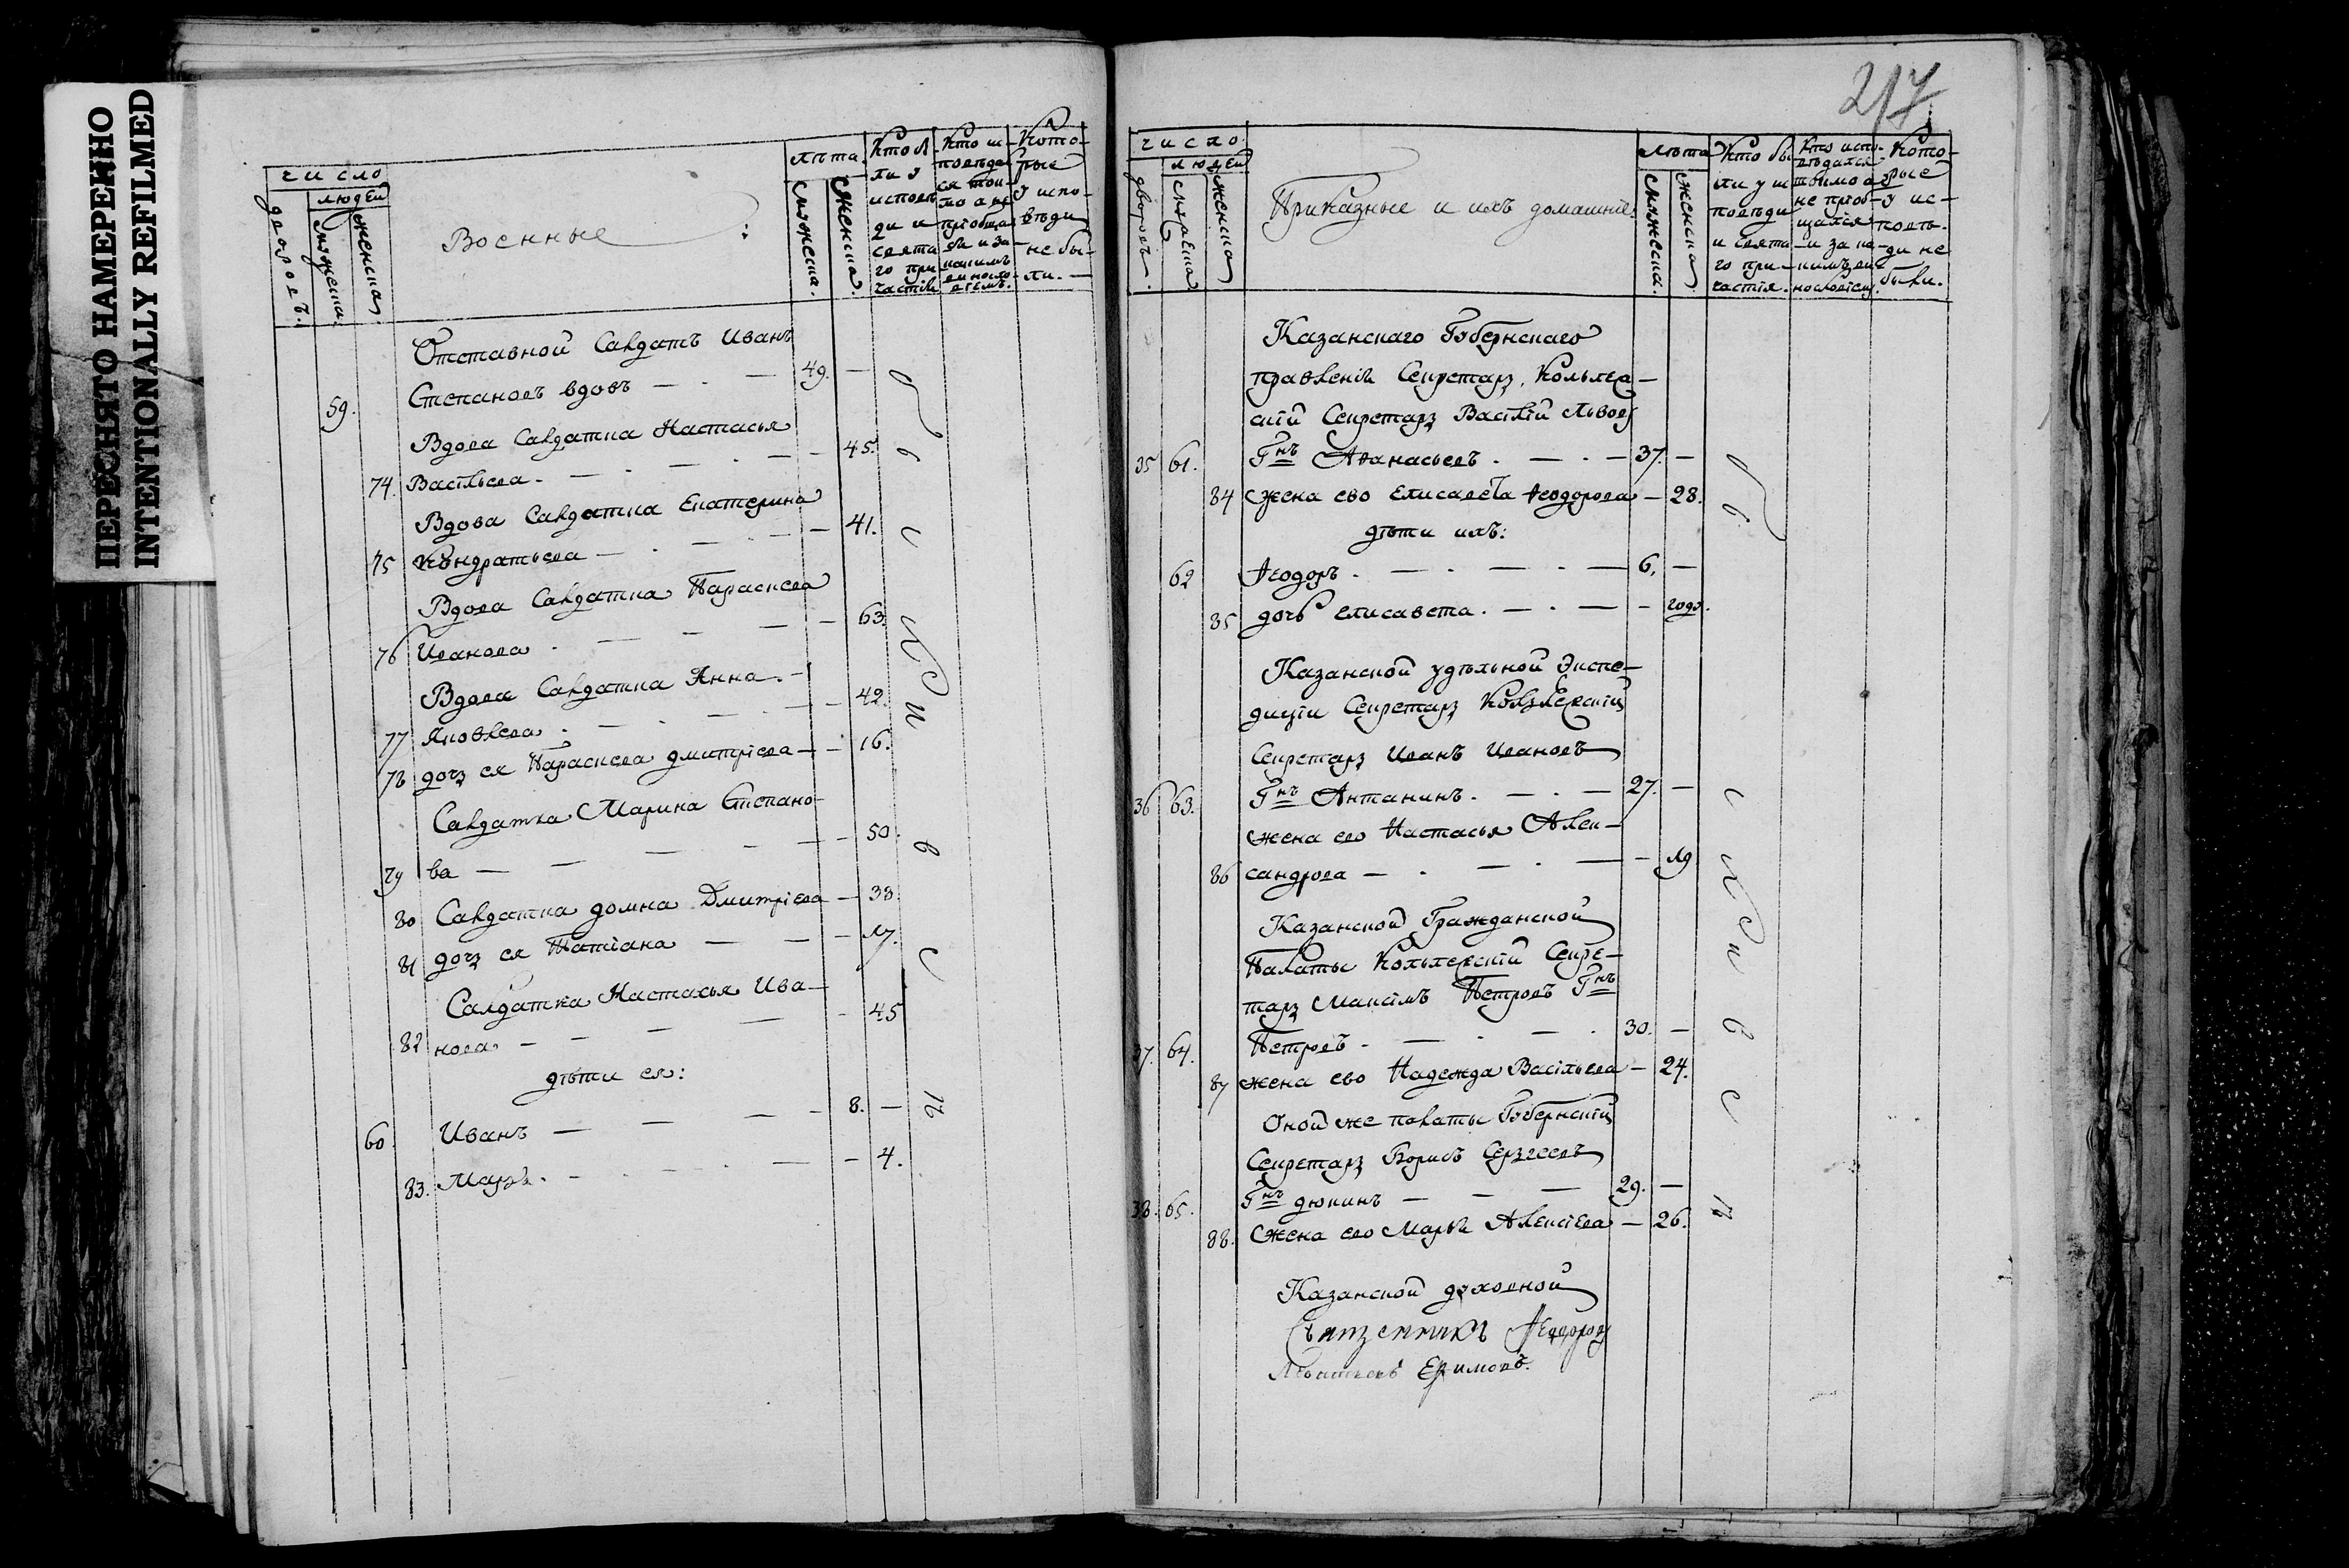 ПЕРЕСНЯТО НАМЕРЕННО
INTENTIONALLY REFILMED
число
людей
дворовъ.
мужеска.
женска.
Военные:
лѣта.
мужеска.
женска.
Кто бы
ли у
исповѣ
ди и
свята
го при
частія
Кто ис
повѣда
ся токмо
а не
пріобща
ся и за
какимъ
винosло
віемъ.
Кото-
рые
у испо-
вѣди
не бы-
ли.
Отставной Салдатъ Иванъ
59. Степановъ вдовъ 49.
Вдова Салдатка Настасья
74. Васильева. 45.
Вдова Салдатка Екатерина
75 Кондратьева 41.
Вдова Салдатка Параскева
76 Иванова. 63.
Вдова Салдатка Анна.
77 Яковлева. 42.
78 дочь ея Параскева дмитріева 16.
Салдатка Марина Степано-
79 ва 50.
80 Салдатка домна Дмитріева 38.
81 дочь ея Татіана 17.
Салдатка Настасья Ива-
82 нова 45
дѣти ея:
60. Иванъ 8.
83. Марья. 4.
были
исп
и
в
с
ѣ
217
число
людей
дворовъ.
мужеска
женска
Приказные и ихъ домашніе.
лѣта
мужеска.
женска.
Кто бы
ли у ис
повѣди
и свята
го при-
частія.
Кто испо-
вѣдался
токмо а
не пріоб-
щался
и за ка-
кимъ ви-
нословіем.
Кото-
рые
у ис-
повѣ-
ди не
были.
Казанскаго Губернскаго
правленія Секретарь, Коллеж-
скій Секретарь Василій Львовъ
35 61. Гнъ Аѳанасьевъ. 37.
84 жена ево Елисавета Ѳеодорова 28.
дѣти ихъ:
62 Ѳеодоръ. 6.
85 дочь елисавета. годъ.
Казанской удѣльной Экспе-
диціи Секретарь Коллежскій
Секретарь Иванъ Ивановъ
36 63. Гнъ Антанинъ. 27.
жена ево Настасья Алек-
86 сандрова 19
Казанской Гражданской
Палаты Коллежскій Секре-
тарь Максимъ Петровъ Гнъ
37. 64. Петровъ. 30.
87 жена ево Надежда Васильева 24.
Оной же палаты Губернскій
Секретарь Борисъ Сергеевъ
38. 65. Гнъ дюпинъ 29.
88. жена ево Марья Алексіева 26.
Казанской духовной
Священникъ Ѳеодоръ
Ефимовъ.